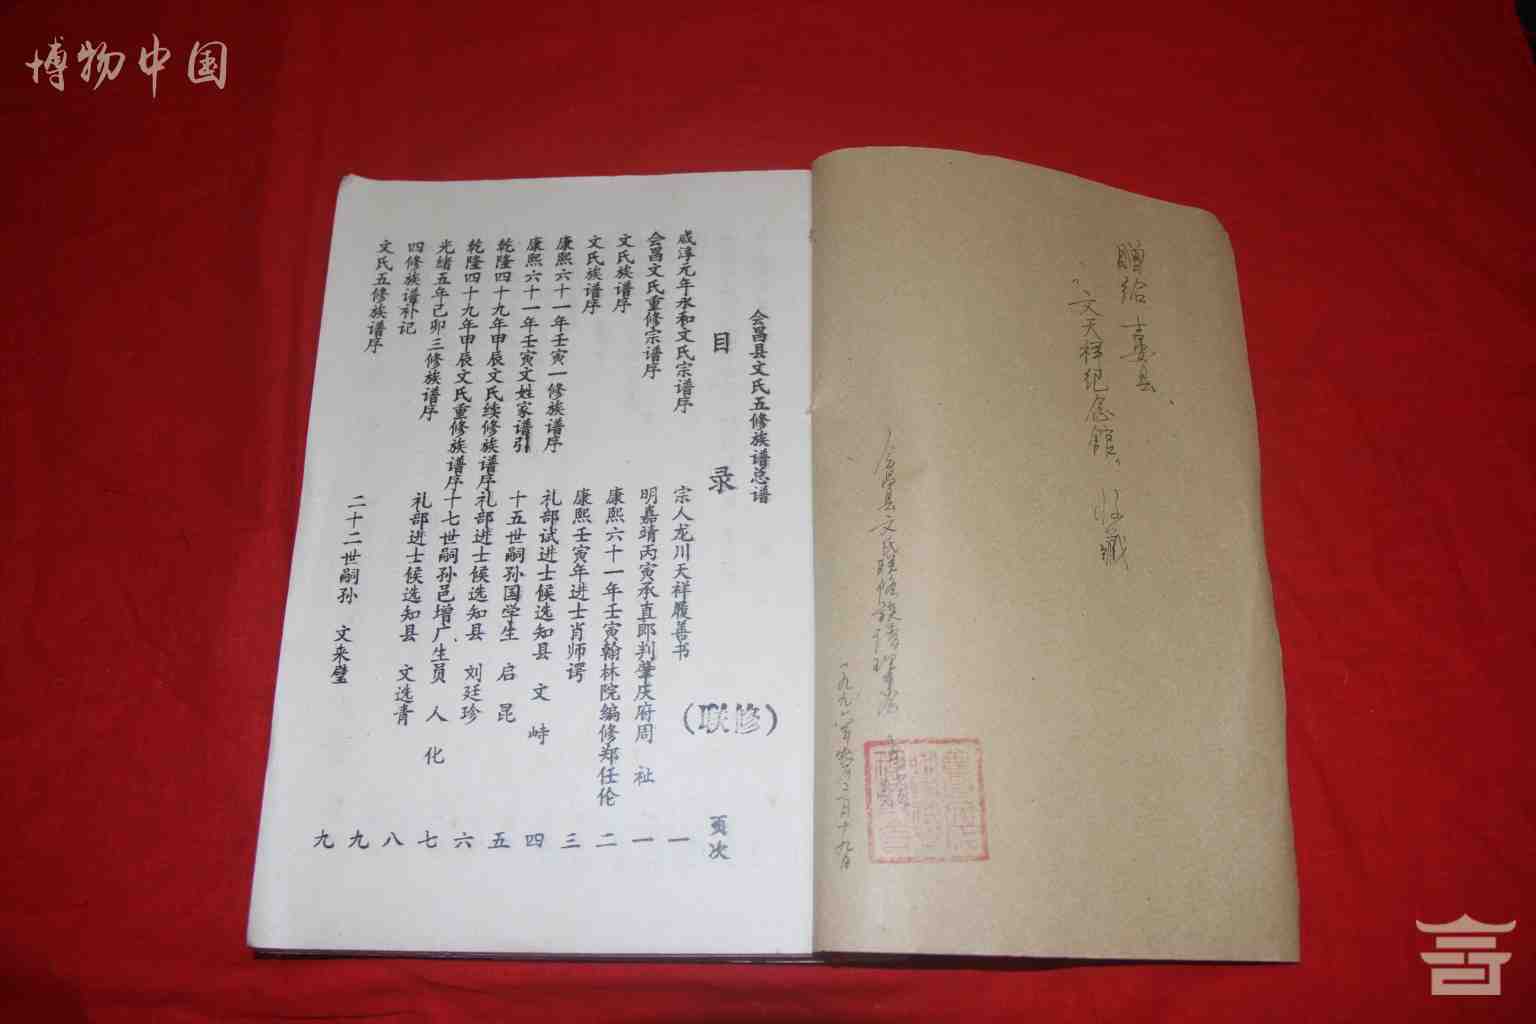 博物中国
赠给吉安县
文天祥纪念馆收藏
会昌县文氏联修族谱理事会
会昌县文氏五修族谱总谱
(联修)
目录
页次
咸淳元年永和文氏宗谱序 宗人龙川天祥履善书 一
会昌文氏重修宗谱序 明嘉靖丙寅承直郎判肇庆府周祉 一
文氏族谱序 康熙六十一年壬寅翰林院编修郑任伦 二
文氏族谱序 康熙壬寅年进士肖师谔 三
康熙六十一年壬寅一修族谱序 礼部试进士候选知县 文峙 四
康熙六十一年壬寅文姓家谱引 十五世嗣孙国学生 启昆 五
乾隆四十九年甲辰文氏续修族谱序 礼部进士候选知县 刘廷珍 六
乾隆四十九年甲辰文氏重修族谱序 十七世嗣孙邑增广生员 人化 七
光绪五年己卯三修族谱序 礼部进士候选知县 文选青 八
四修族谱补记 九
文氏五修族谱序 二十二世嗣孙 文来璧 九